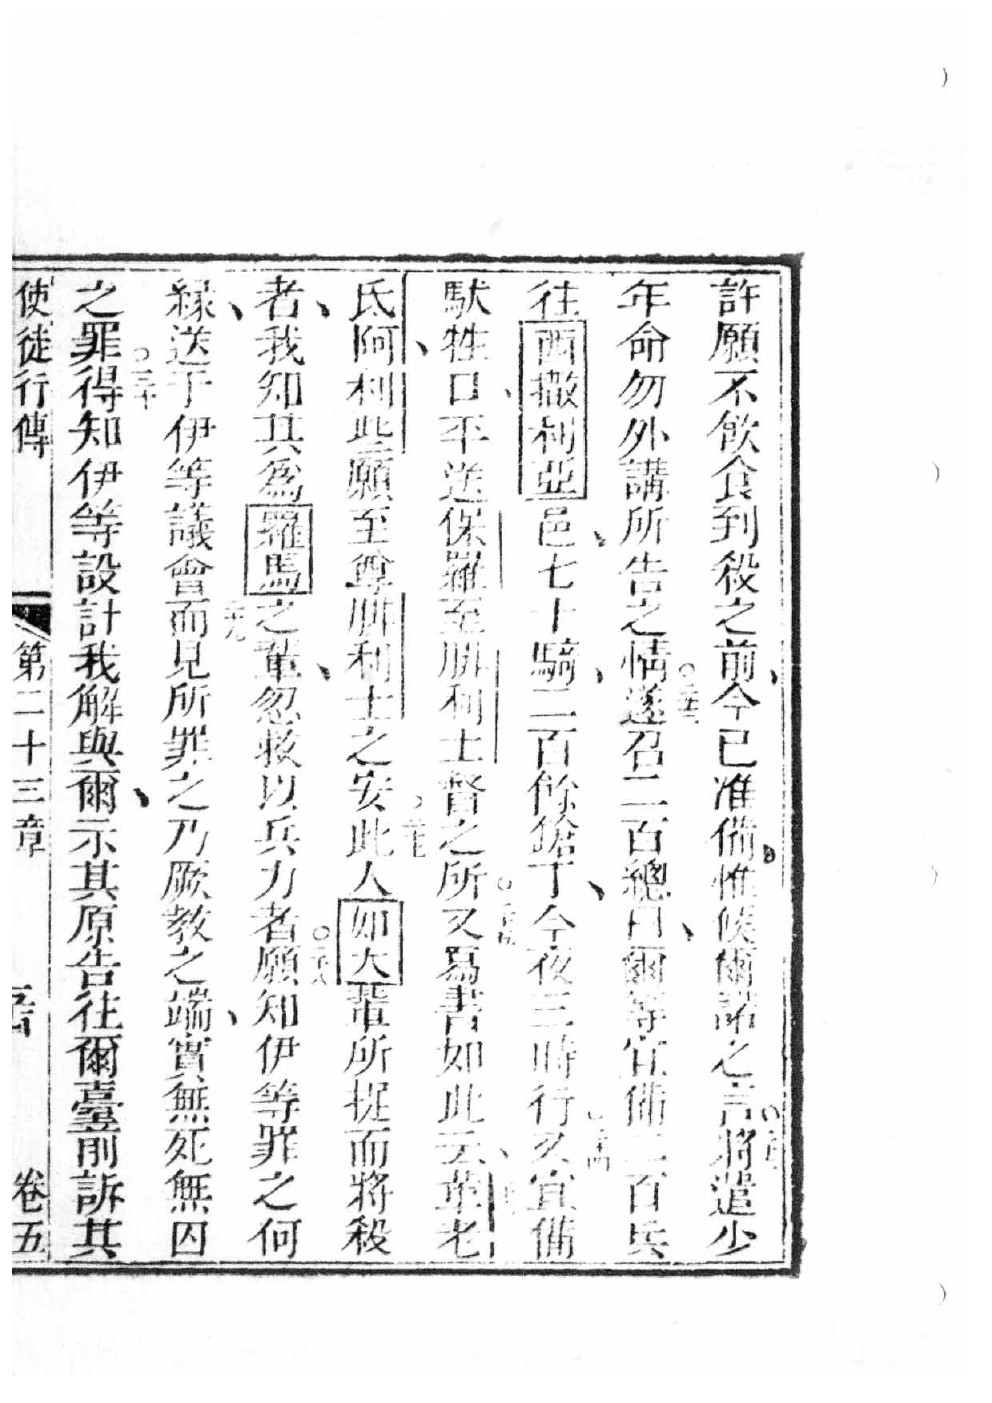 許願不飲食到殺之前今已准備惟候爾諾之言將遣少
年命勿外講所告之情遂召二百總曰爾等宜備二百兵
往西撒利亞邑七十騎二百餘鎗丁今夜三時行又宜備
馱牲口平送保羅至腓利士督之所又寫書如此云革老
氏阿利此願至尊腓利士之安此人如大輩所捉而將殺
者我知其為羅馬之輩忽救以兵力者願知伊等罪之何
緣送于伊等議會而見所罪之乃厥教之端實無死無囚
之罪得知伊等設計我解與爾示其原告往爾臺前訴其
使徒行傳 第二十三章 卷五